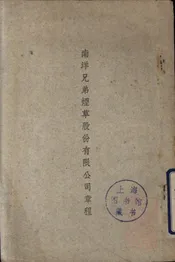 南洋兄弟煙草股份有限公司章程
上海
圖書館
藏書